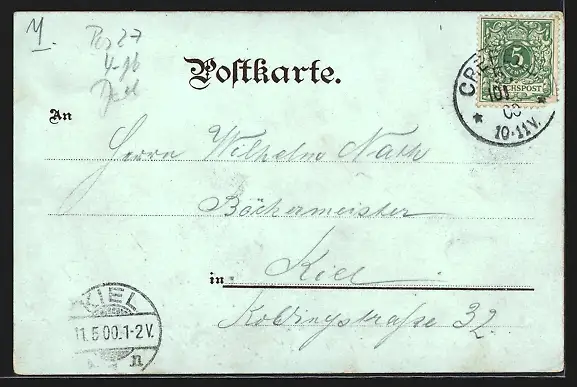 M.
Postkarte.
5
CHSPOST
CREF
00
10-11V.
An
Herrn Wilhelm Nath
Bäckermeister
in Kiel
Koldingstraße 32.
KIEL
11.5.00.1-2V.
n